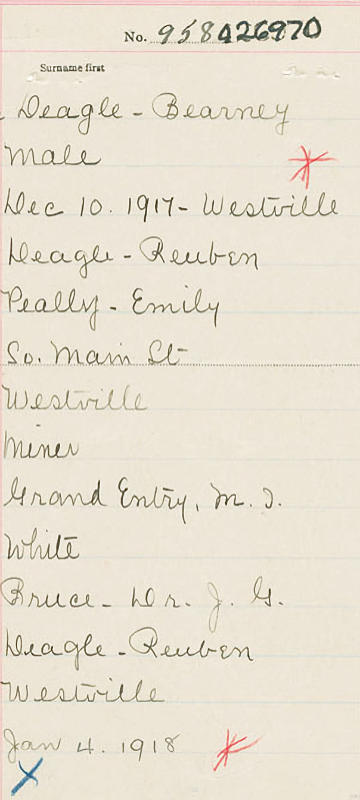 No. 958026970
Surname first
Deagle - Bearney
Male
Dec 10. 1917 - Westville
Deagle - Reuben
Peally - Emily
So. Main St
Westville
Miner
Grand Entry, M. I.
White
Bruce - Dr. J. G.
Deagle - Reuben
Westville
Jan 4. 1918